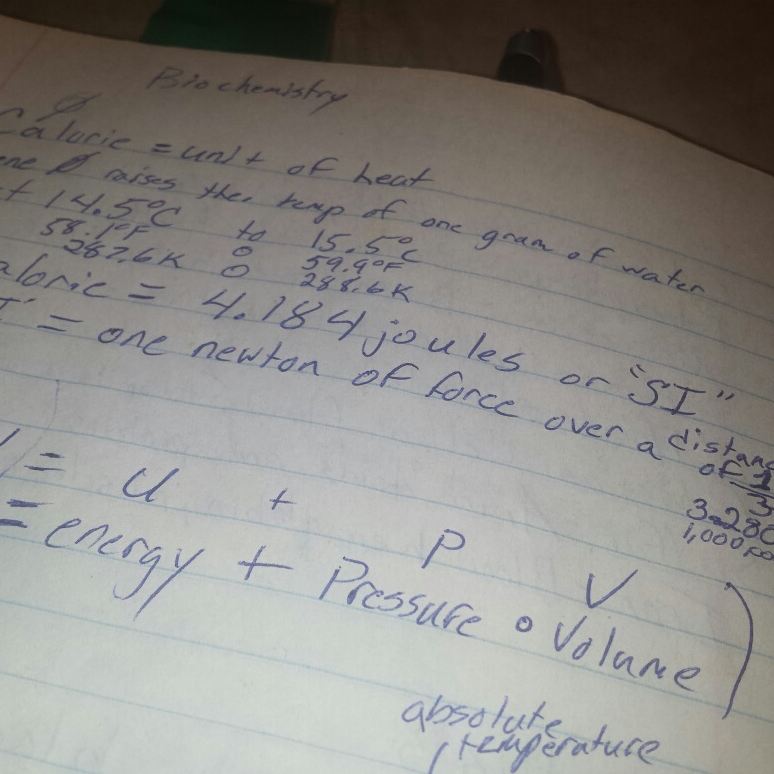 Biochemistry
Calorie = unit of heat
raises the temp of one gram of water
14.5°C to 15.5°C
58.1°F 59.9°F
287.6K 288.6K
= 4.184 joules or "SI"
= one newton of force over a distanc
of 1
3.280
1,000
= U + P V
= energy + Pressure • Volume )
absolute
temperature